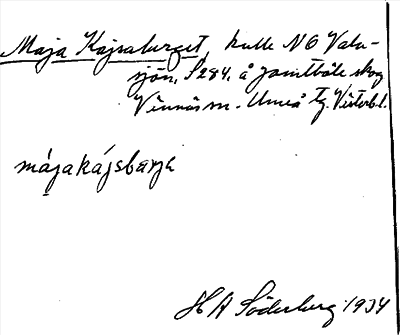 Maja Kajsaberget, kulle NO Valu-
sjön, S 284, å Jämtböle skog
Vännäs sn. Umeå tg. Västerb.l.
májakájsbærjə
H A Söderberg 1934